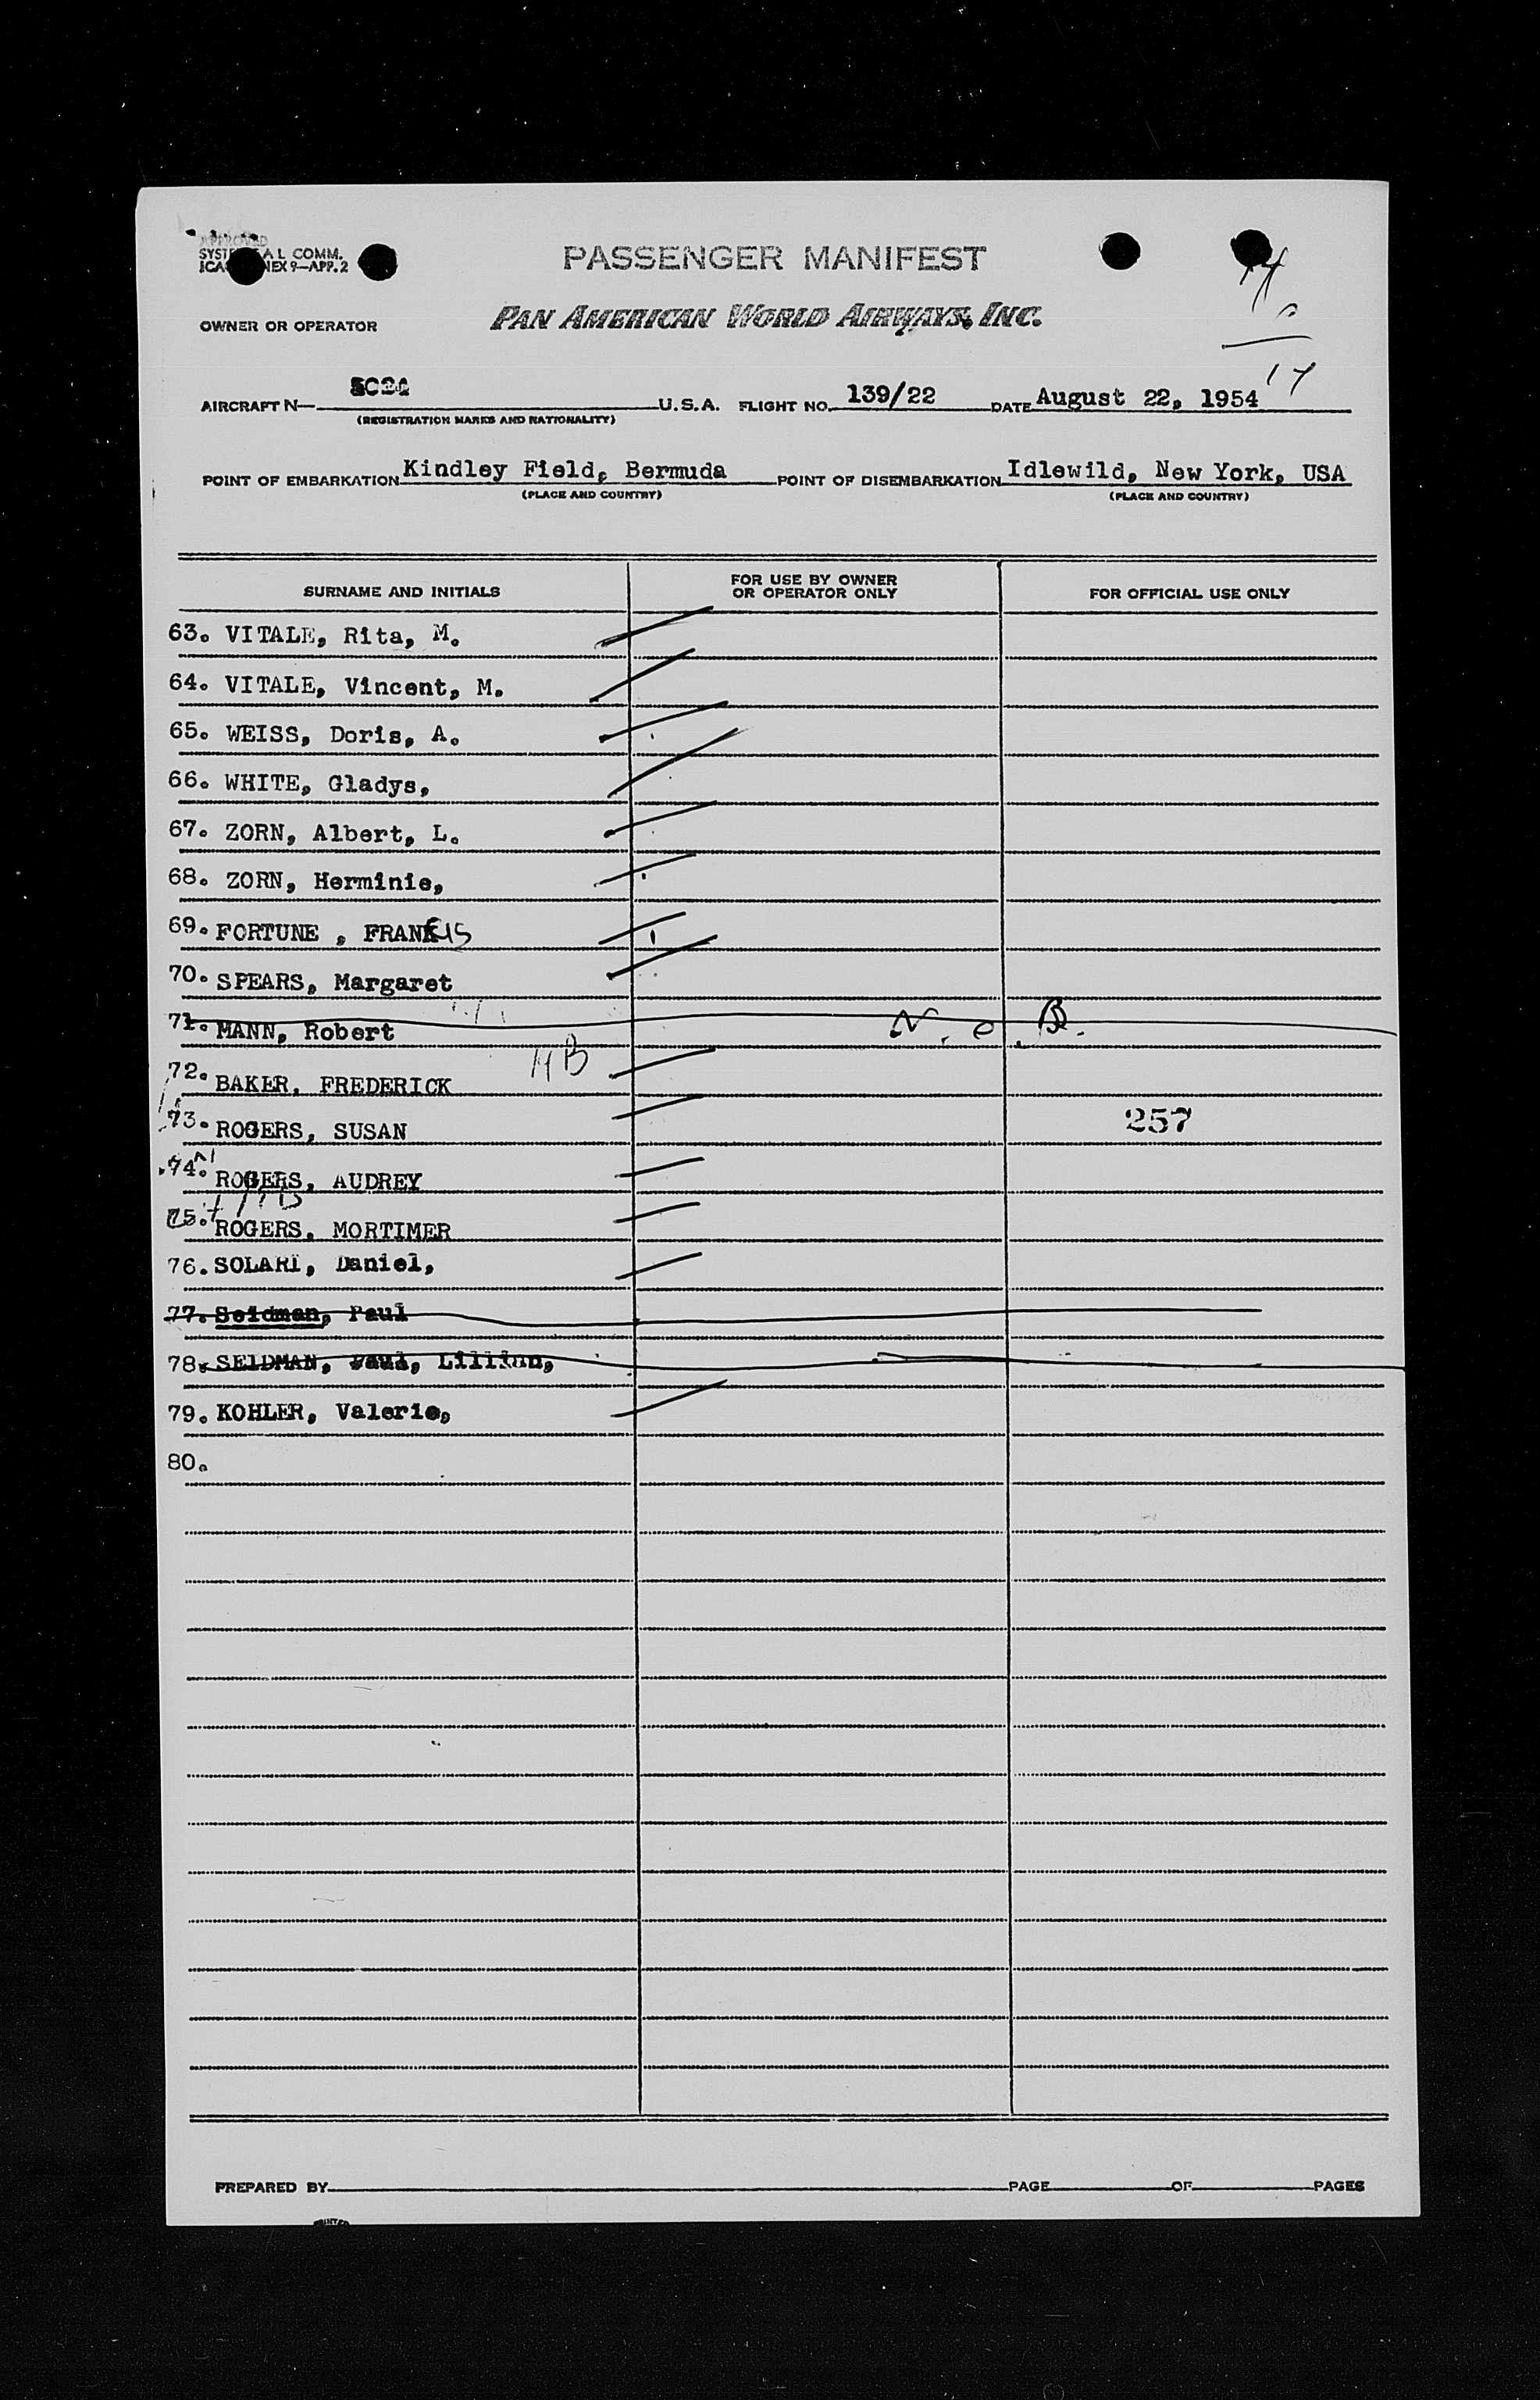 APPROVED
COMM.
9—APP. 2
PASSENGER MANIFEST
OWNER OR OPERATOR
PAN AMERICAN WORLD AIRWAYS, INC.
17
AIRCRAFT N— U.S.A. FLIGHT NO. 139/22 DATE August 22, 1954
(REGISTRATION MARKS AND NATIONALITY)
POINT OF EMBARKATION Kindley Field, Bermuda POINT OF DISEMBARKATION Idlewild, New York, USA
(PLACE AND COUNTRY) (PLACE AND COUNTRY)
SURNAME AND INITIALS
FOR USE BY OWNER
OR OPERATOR ONLY
FOR OFFICIAL USE ONLY
63. VITALE, Rita, M.
64. VITALE, Vincent, M.
65. WEISS, Doris, A.
66. WHITE, Gladys,
67. ZORN, Albert, L.
68. ZORN, Herminie,
69. FORTUNE , FRANCIS
70. SPEARS, Margaret
71. MANN, Robert N. O. B.
72. BAKER, FREDERICK HB
73. ROGERS, SUSAN 257
74. ROGERS, AUDREY
75. ROGERS, MORTIMER
76. SOLARI, Daniel,
77. Seidman, Paul
78. SEIDMAN, Paul, Lillian,
79. KOHLER, Valerie,
80.
PREPARED BY PAGE OF PAGES